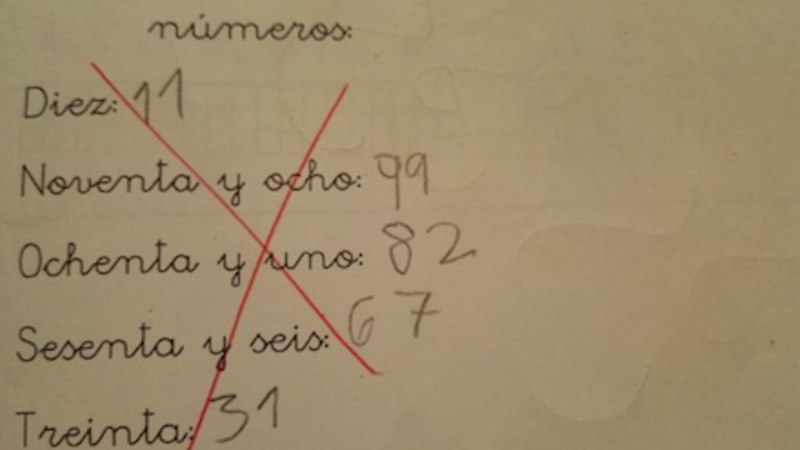 números:
Diez: 11
Noventa y ocho: 99
Ochenta y uno: 82
Sesenta y seis: 67
Treinta: 31